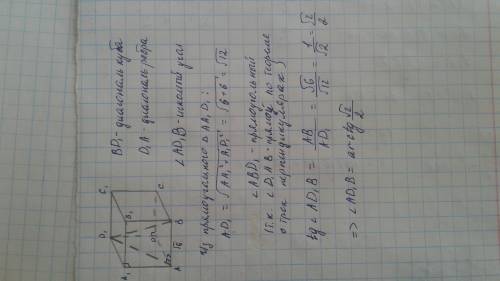 BD₁ - диагональ куба
D₁A - диагональ ребра
∠AD₁B - искомый угол
Из прямоугольного △AA₁D₁:
AD₁ = √AA₁² + A₁D₁² = √6+6 = √12
∠ABD₁ - прямоугольный
(т.к. ∠D₁AB - прямой по теореме
о трех перпендикулярах)
tg ∠AD₁B = AB/AD₁ = √6/√12 = 1/√2 = √2/2
=> ∠AD₁B = arctg √2/2
C₁
D₁
B₁
A₁
C
D
B
A
√6
√6